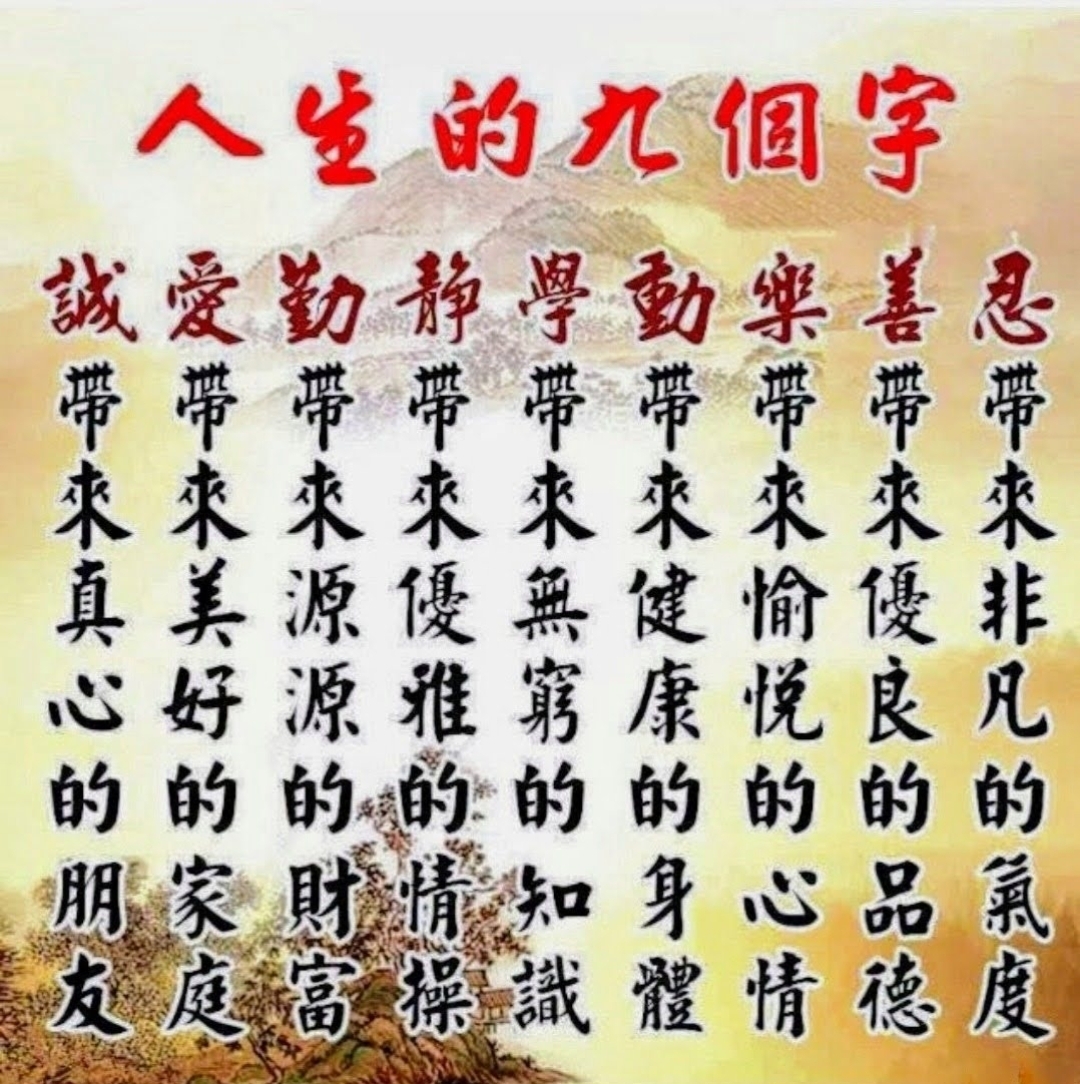 人生的九個字
忍帶來非凡的氣度
善帶來優良的品德
樂帶來愉悅的心情
動帶來健康的身體
學帶來無窮的知識
靜帶來優雅的情操
勤帶來源源的財富
愛帶來美好的家庭
誠帶來真心的朋友